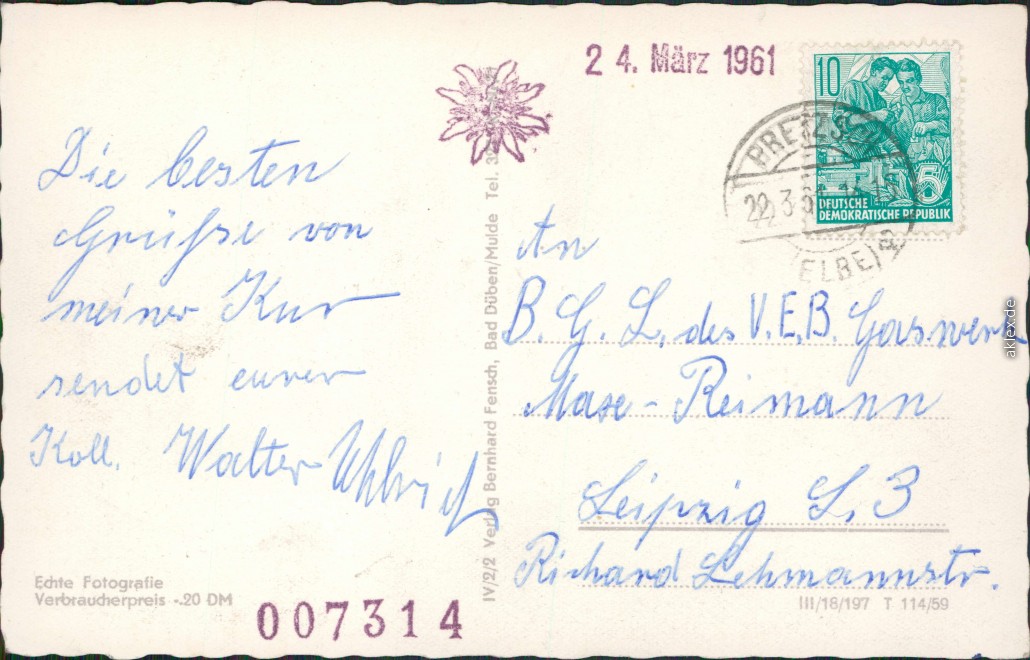 24. März 1961
10
DEUTSCHE
DEMOKRATISCHE REPUBLIK
5
22.3.61
(ELBE)
Die besten
Grüße von
meiner Kur
sendet eurer
Koll. Walter
An
B. G. L. des V.E.B. Gaswerk
Max-Reimann
Leipzig S. 3
Richard Lehmannstr.
IV/2/2 Verlag Bernhard Fensch, Bad Düben/Mulde Tel.
Echte Fotografie
Verbraucherpreis -.20 DM
007314
III/18/197 T 114/59
aklex.de